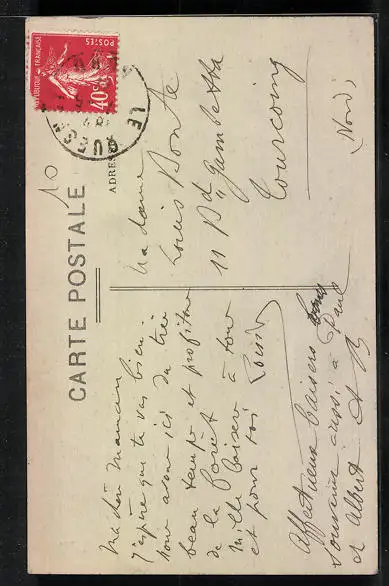 CARTE POSTALE
ADRESSE
10
RÉPUBLIQUE FRANÇAISE
POSTES
40c
LE
Madame
Louis Bonte
11 Bd Gambetta
Tourcoing
(Nord)
Ma chère Maman
J'espère que tu vas bien.
nous avons ici du très
beau temps et profitons
de la forêt
Mille baisers à tous
et pour toi Louis
Affectueux baisers
souvenirs aussi à Paul
et Albert